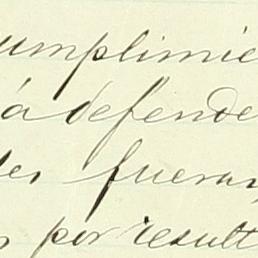 umplimie
á defende
les fueran
s por result